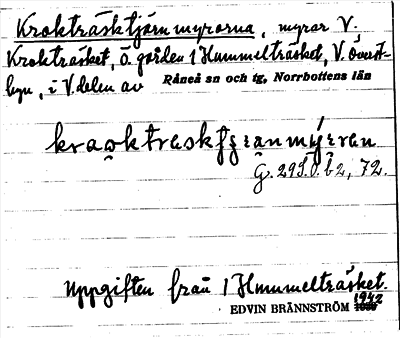 Krokträsktjärnmyrorna, myror V.
Krokträsket, Ö. gården 1 Hummelträsket, V. Överst-
byn, i V. delen av Råneå sn och tg, Norrbottens län
G. 29 S.Ö. b2, 72.
Uppgiften från 1 Hummelträsket.
EDVIN BRÄNNSTRÖM 1942